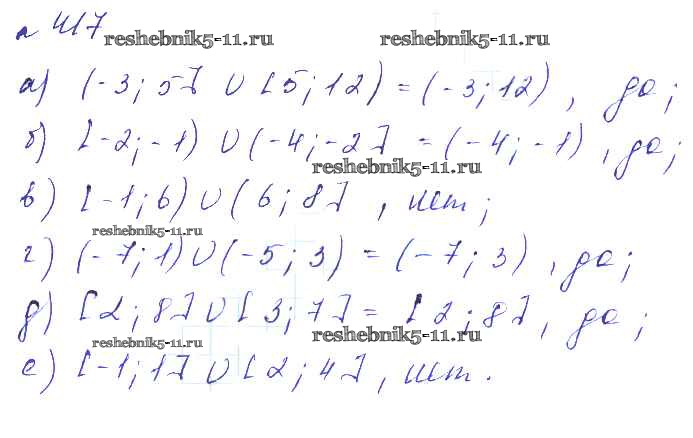 № 417
reshebnik5-11.ru reshebnik5-11.ru
а) (-3; 5] ∪ [5; 12) = (-3; 12), да;
б) [-2; -1) ∪ (-4; -2] = (-4; -1), да;
reshebnik5-11.ru
в) [-1; 6) ∪ (6; 8], нет;
reshebnik5-11.ru
г) (-7; 1) ∪ (-5; 3) = (-7; 3), да;
д) [2; 8] ∪ [3; 7] = [2; 8], да;
reshebnik5-11.ru reshebnik5-11.ru
е) [-1; 1] ∪ [2; 4], нет.